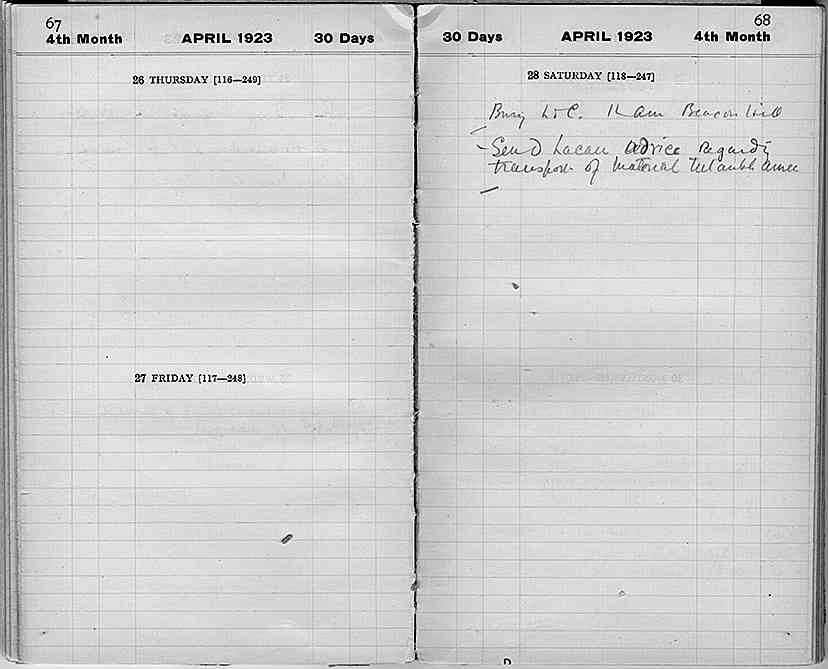 67
4th Month APRIL 1923 30 Days
26 THURSDAY [116—249]
27 FRIDAY [117—248]
68
30 Days APRIL 1923 4th Month
28 SATURDAY [118—247]
11 am Beacon Hill
Send Lacau advice regardg
transport of material